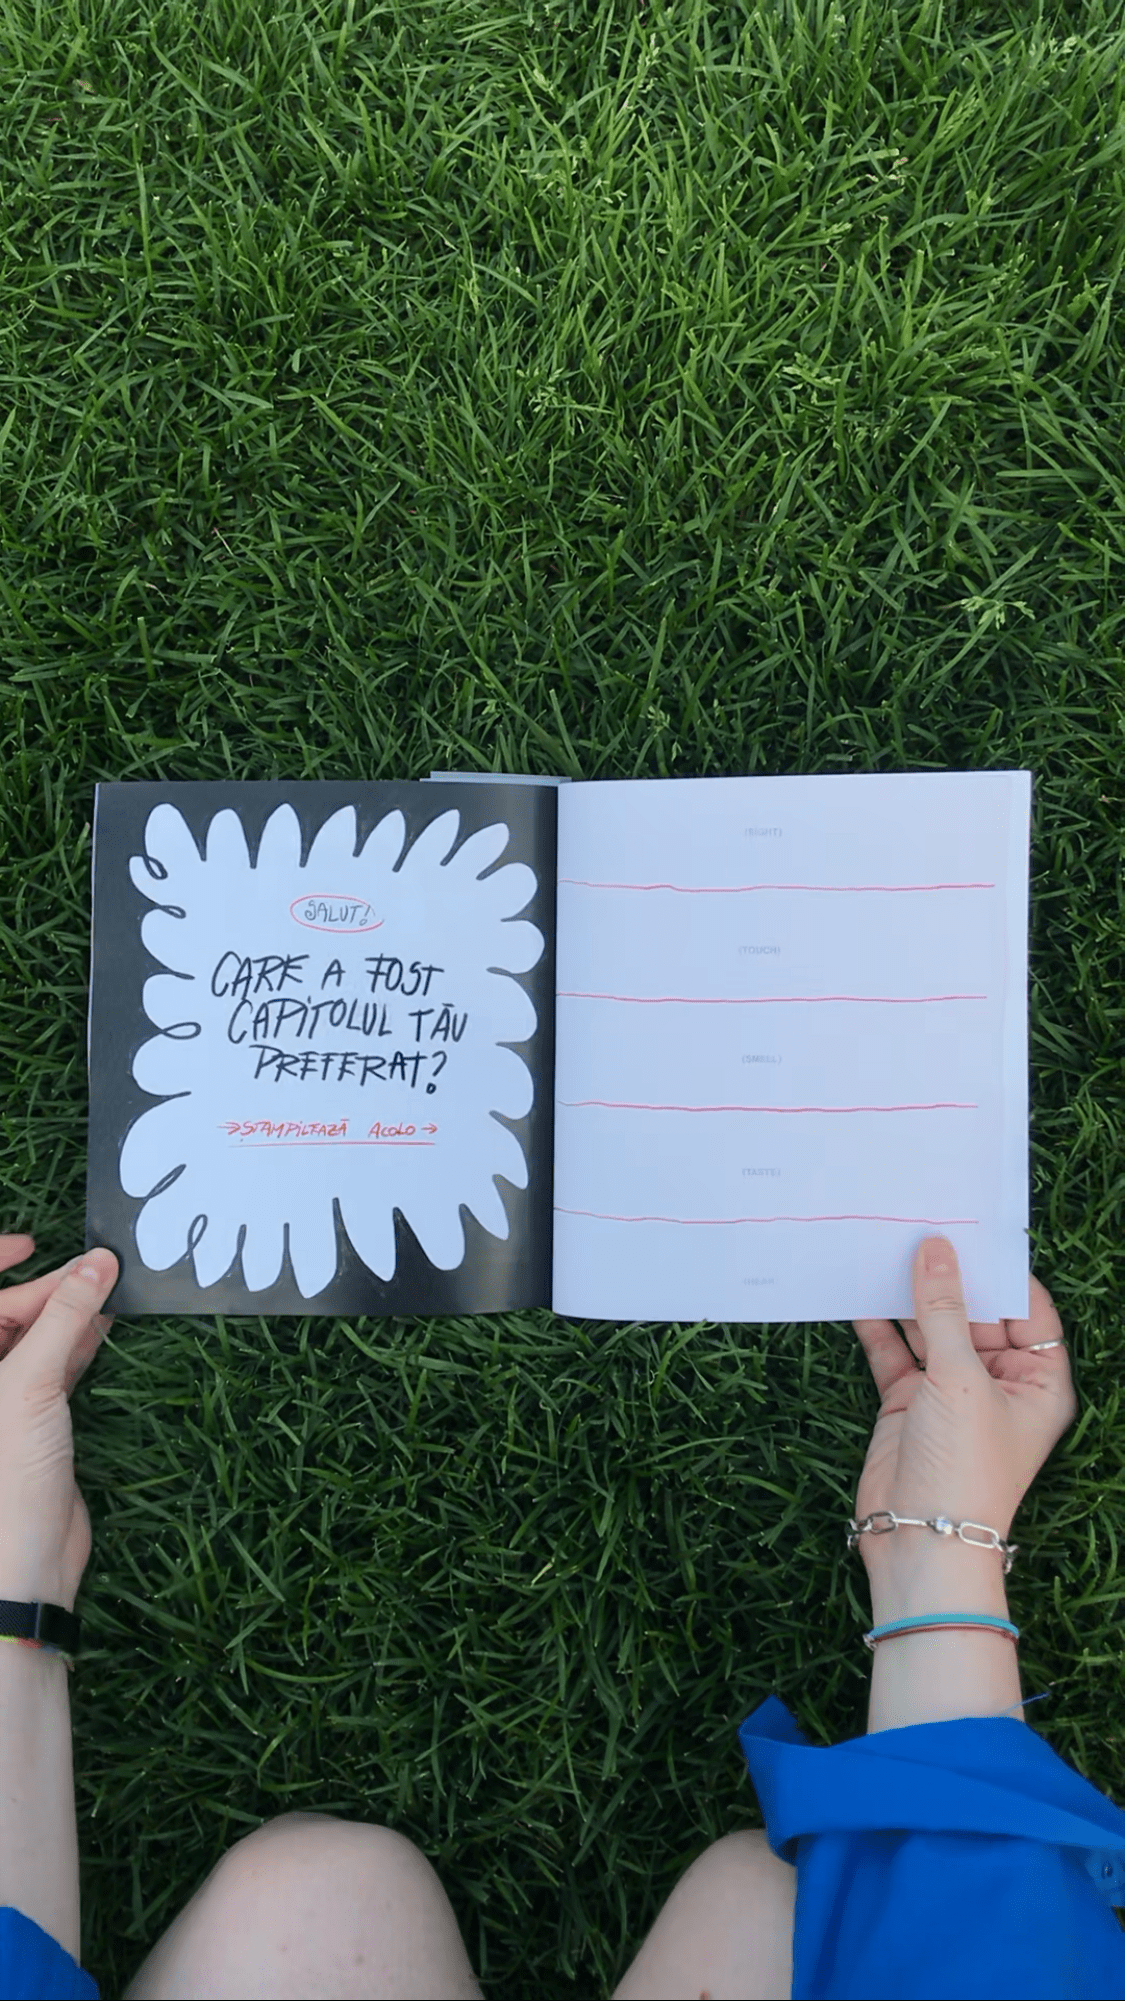 SALUT!
CARE A FOST
CAPITOLUL TĂU
PREFERAT?
→ȘTAMPILEAZĂ ACOLO→
(SIGHT)
(TOUCH)
(SMELL)
(TASTE)